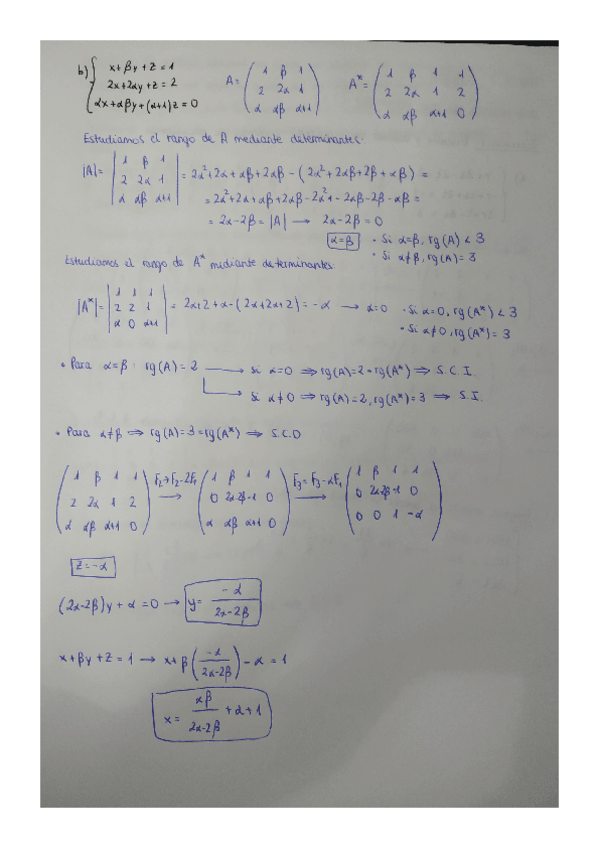 b) { x+βy+z=1
2x+2αy+z=2
αx+αβy+(α+1)z=0
A= ( 1 β 1
2 2α 1
α αβ α+1 )
A*= ( 1 β 1 1
2 2α 1 2
α αβ α+1 0 )
Estudiamos el rango de A mediante determinantes:
|A|= | 1 β 1
2 2α 1
α αβ α+1 | = 2α²+2α+αβ+2αβ-(2α²+2αβ+2β+αβ) =
= 2α²+2α+αβ+2αβ-2α²-2αβ-2β-αβ=
= 2α-2β=|A| → 2α-2β=0
α=β
· Si α=β, rg(A)<3
· Si α≠β, rg(A)=3
Estudiamos el rango de A* mediante determinantes:
|A*|= | 1 1 1
2 2 1
α 0 α+1 | = 2α+2+α-(2α+2α+2)=-α → α=0
· Si α=0, rg(A*)<3
· Si α≠0, rg(A*)=3
· Para α=β rg(A)=2 → Si α=0 ⇒ rg(A)=2=rg(A*) ⇒ S.C.I.
→ Si α≠0 ⇒ rg(A)=2, rg(A*)=3 ⇒ S.I.
· Para α≠β ⇒ rg(A)=3=rg(A*) ⇒ S.C.D
( 1 β 1 1
2 2α 1 2
α αβ α+1 0 ) F₂→F₂-2F₁ → ( 1 β 1 1
0 2α-2β -1 0
α αβ α+1 0 ) F₃=F₃-αF₁ → ( 1 β 1 1
0 2α-2β -1 0
0 0 1 -α )
z=-α
(2α-2β)y+α=0 → y= -α / 2α-2β
x+βy+z=1 → x+β( -α / 2α-2β )-α=1
x= αβ / 2α-2β +α+1